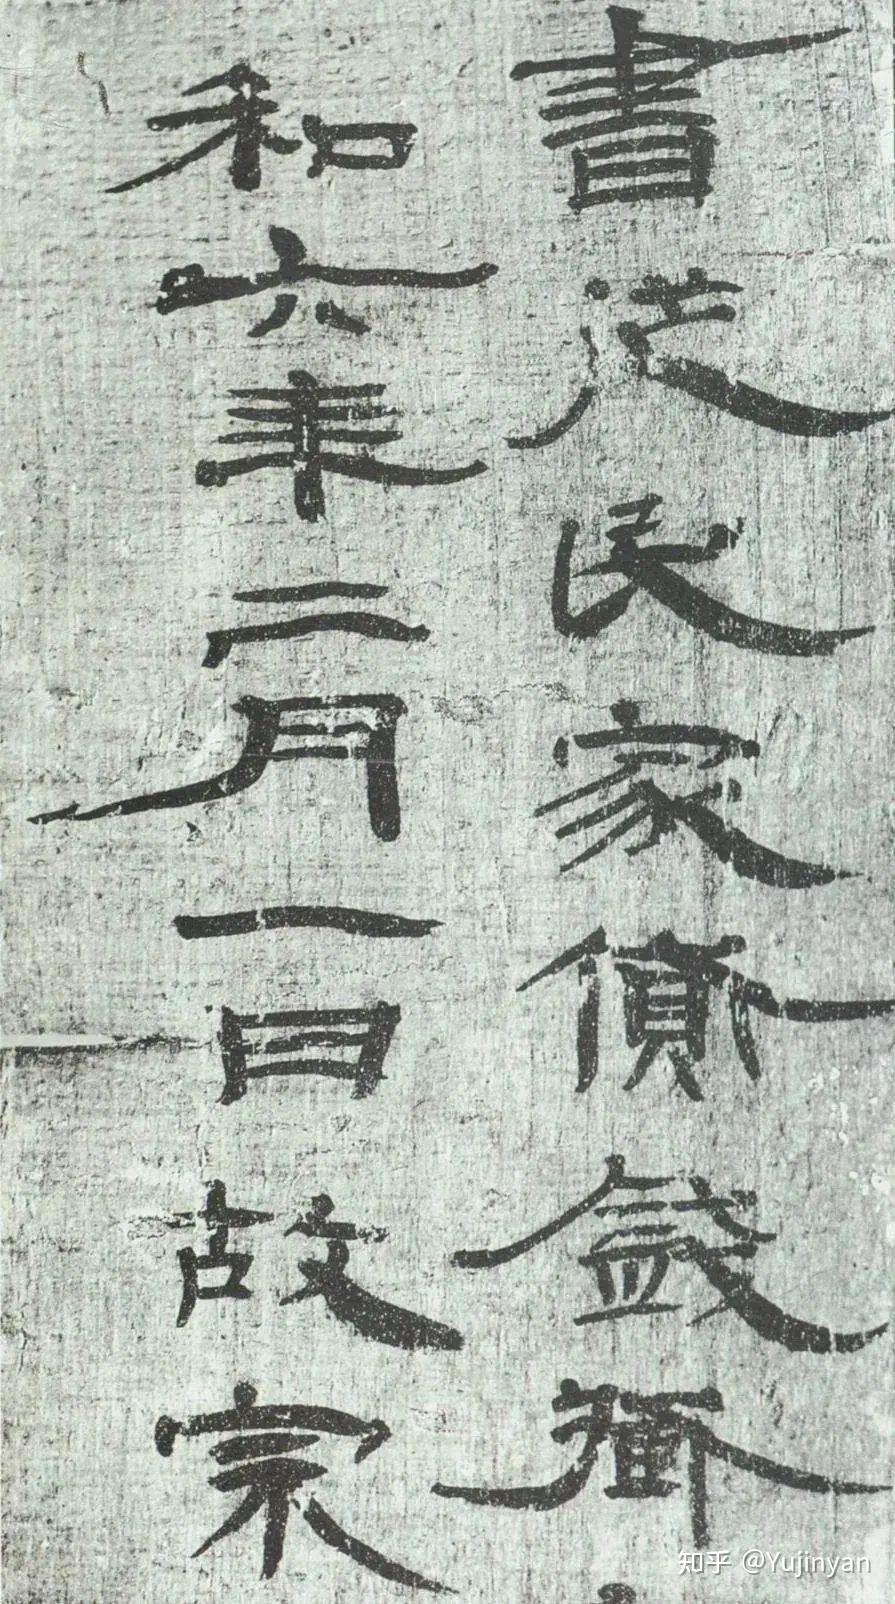 書從民家貸錢
和六年二月一日故宗
知乎 @Yujinyan